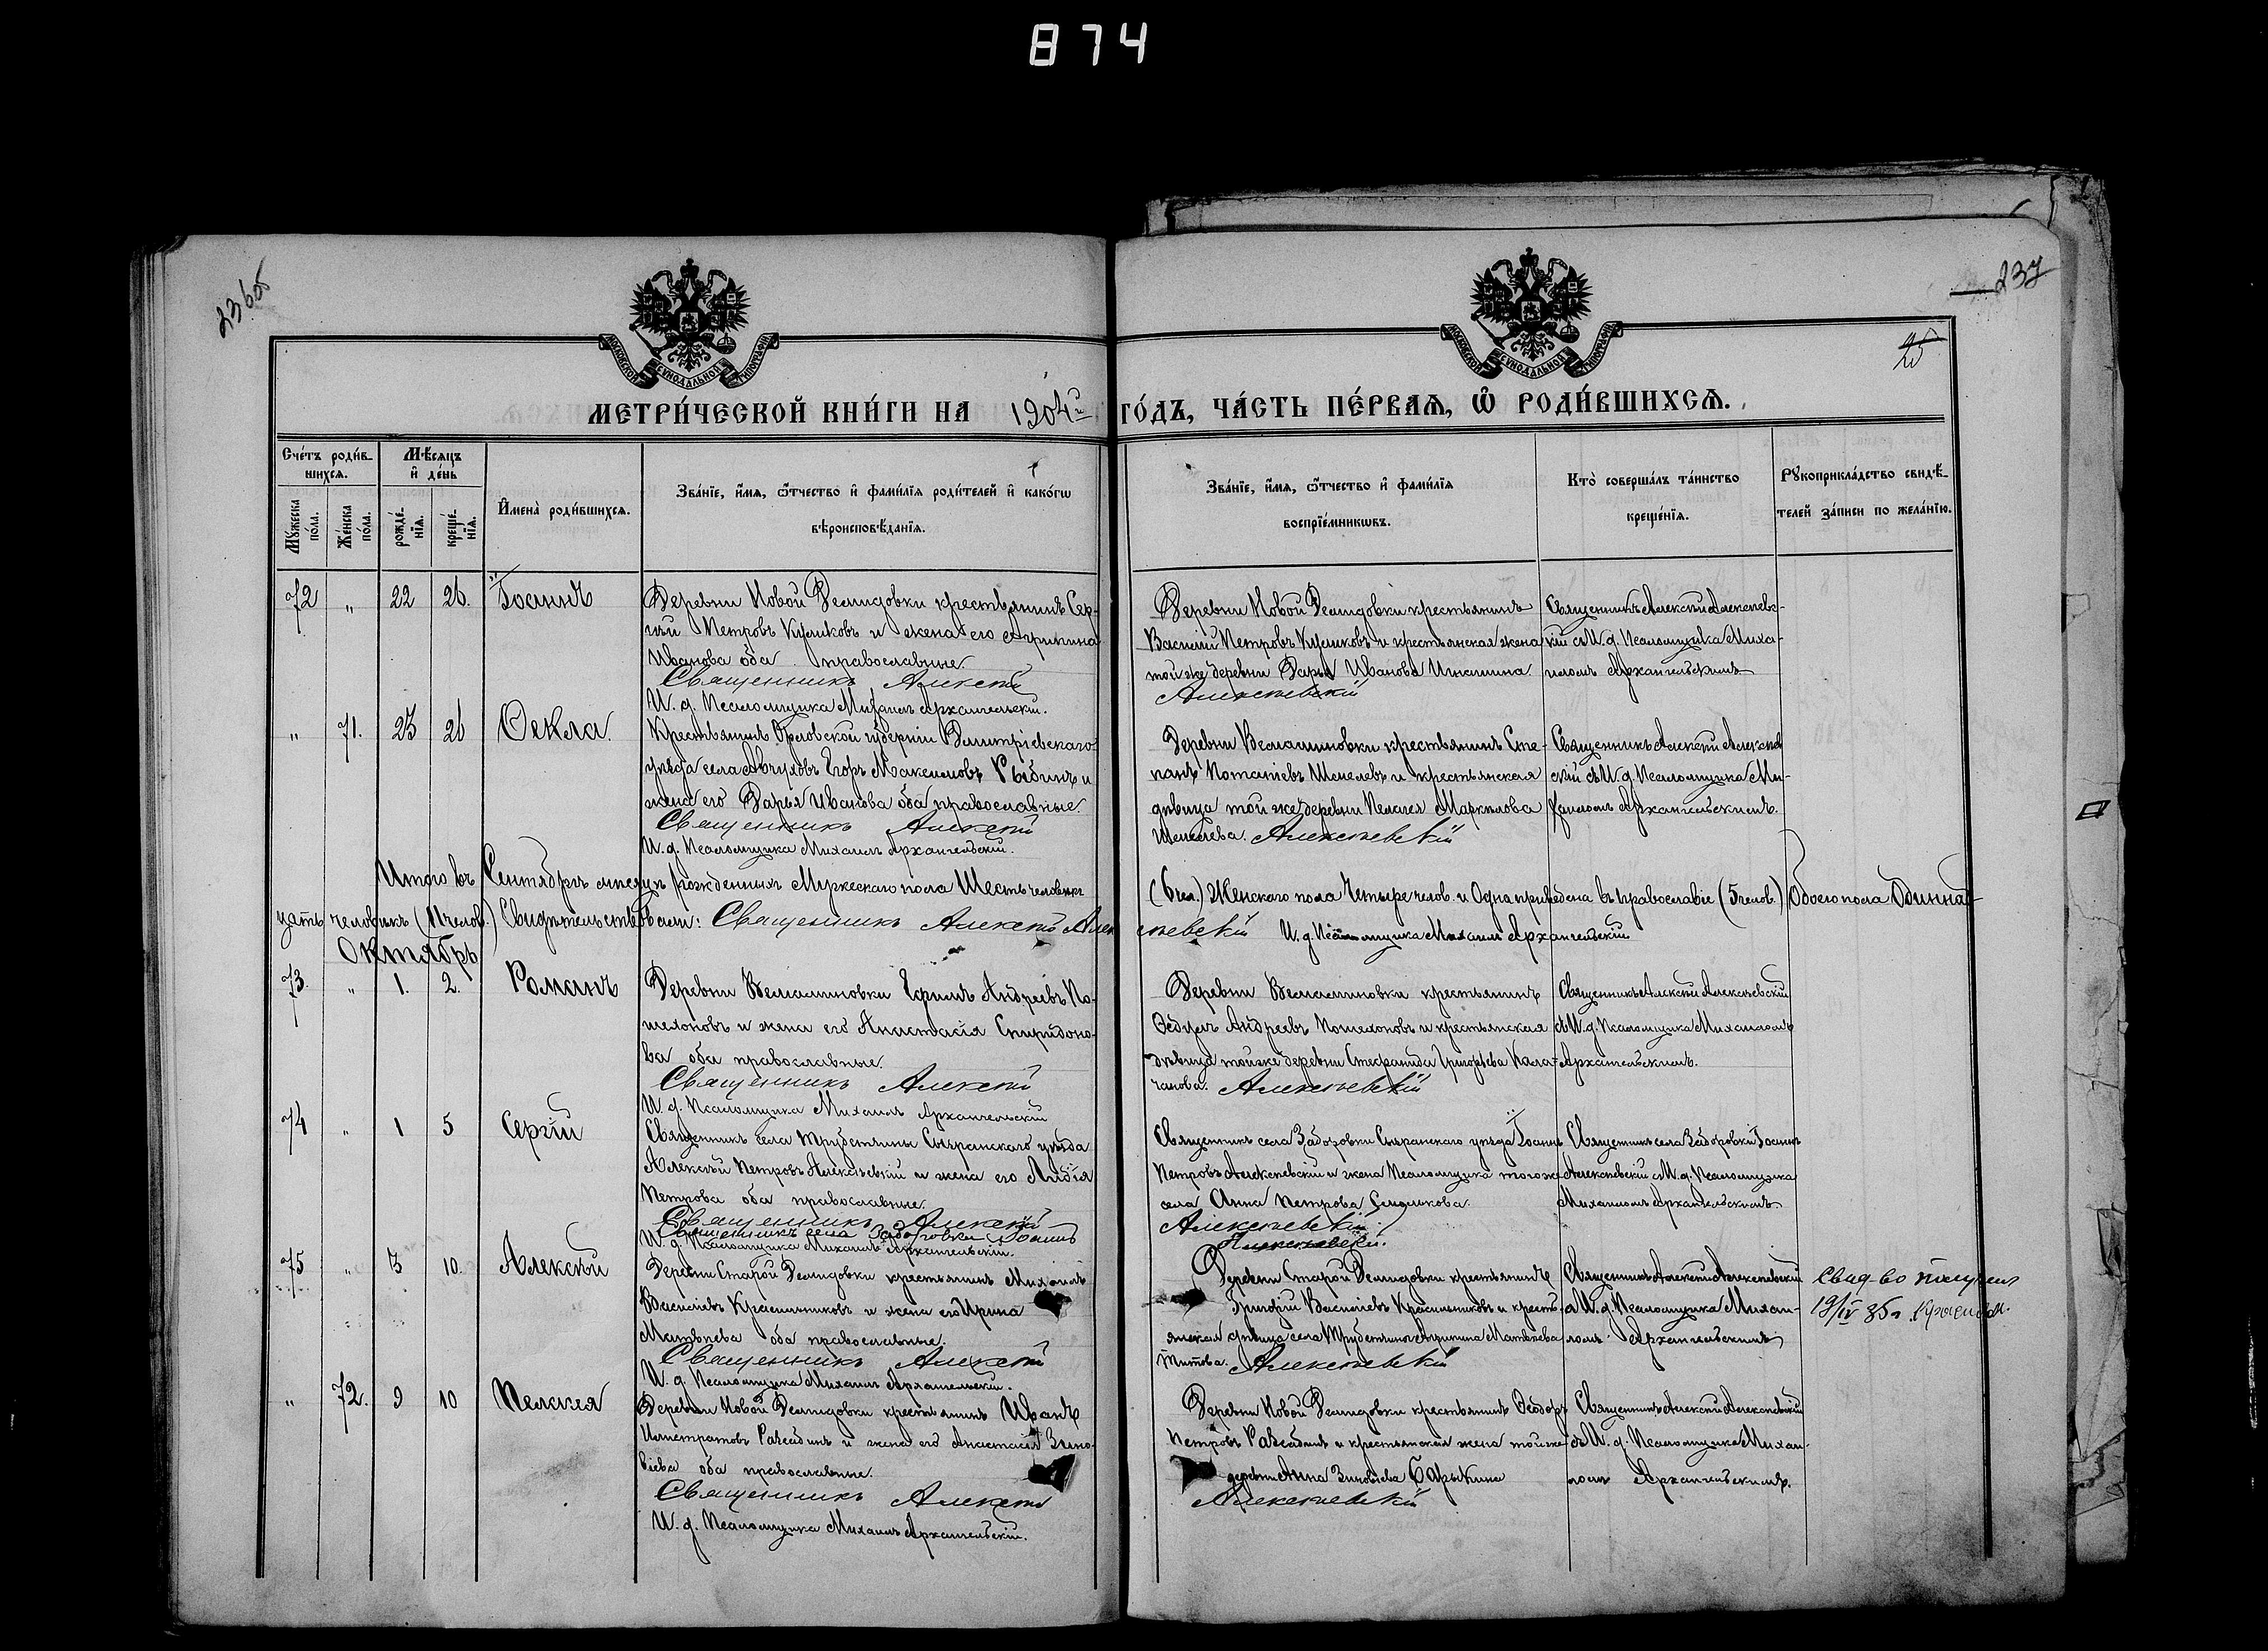 874
236об
237
25
МОСКОВСКОЙ СѴНОДАЛЬНОЙ ТИПОГРАФІИ
МОСКОВСКОЙ СѴНОДАЛЬНОЙ ТИПОГРАФІИ
МЕТРИ́ЧЕСКОЙ КНИ́ГИ НА 1904й ГО́ДЪ, ЧА́СТЬ ПЕ́РВАѦ, Ѡ҆ РОДИ́ВШИХСѦ.
Сче́тъ роди́в-
шихсѧ.
Мѣ́сѧцъ
и҆ де́нь
Мꙋ́жеска
по́ла.
Же́нска
по́ла.
рожде́-
нїѧ.
креще́-
нїѧ.
И҆мена̀ роди́вшихсѧ.
Зва́нїе, и҆́мѧ, ѻ҆́тчество и҆ фами́лїѧ роди́телей и҆ како́гѡ
вѣроисповѣ́данїѧ.
Зва́нїе, и҆́мѧ, ѻ҆́тчество и҆ фами́лїѧ
воспрїе́мникѡвъ.
Кто̀ соверша́лъ та́инство
креще́нїѧ.
Рꙋкоприкла́дство свидѣ́-
телей за́писи по жела́нїю.
72 " 22 26. Іоаннъ
Деревни Новой Демидовки крестьянинъ Сер-
гій Петровъ Куликовъ и жена его Агрипина
Иванова оба православные.
Священникъ Алексій
И. д. Псаломщика Михаилъ Архангельскій.
Деревни Новой Демидовки крестьянинъ
Василій Петровъ Куликовъ и крестьянская жена
той же деревни Дарья Иванова
Алексѣевскій
Священникъ Алексій Алексѣевс-
кій съ И. д. Псаломщика Миха-
иломъ Архангельскимъ
" 71. 23 26 Ѳекла.
Крестьянинъ Орловской губерніи Дмитріевскаго
уѣзда села Егоръ Максимовъ Рыбинъ и
жена его Дарья Иванова оба православные.
Священникъ Алексій
И. д. Псаломщика Михаилъ Архангельскій.
Деревни Вельяминовки крестьянинъ Сте-
панъ Потапіевъ Шепелевъ и крестьянская
дѣвица той же деревни Пелагея Маркелова
Шепелева. Алексѣевскій
Священникъ Алексій Алексѣев-
скій съ И. д. Псаломщика Ми-
хаиломъ Архангельскимъ.
Итого въ Сентябрѣ мѣсяцѣ рожденныхъ Мужескаго пола Шесть человѣкъ (6 чел.) Женскаго пола Четыре челов. и Одна приведена въ православіе (5 челов.) Обоего пола Одинна-
цать человѣкъ (11 челов.) Свидѣтельствовали: Священникъ Алексій Алексѣевскій И. д. Псаломщика Михаилъ Архангельскій
Октябрь
73. " 1. 2. Романъ
Деревни Вельяминовки Ефимъ Андреевъ По-
шехоновъ и жена его Анастасія Спиридоно-
ва оба православные.
Священникъ Алексій
И. д. Псаломщика Михаилъ Архангельскій
Деревни Вельяминовки крестьянинъ
Ѳедулъ Андреевъ Пошехоновъ и крестьянская
дѣвица той же деревни Степанида Григорьева Кала-
чанова. Алексѣевскій
Священникъ Алексій Алексѣевскій
съ И. д. Псаломщика Михаиломъ
Архангельскимъ.
74 " 1 5 Сергій
Священникъ села Трубетчины Сызранскаго уѣзда
Алексѣй Петровъ Алексѣевскій и жена его Лидія
Петрова оба православные.
Священникъ Алексій
Священникъ села Заборовки Іоаннъ
И. д. Псаломщика Михаилъ Архангельскій.
Священникъ села Заборовки Сызранскаго уѣзда Іоаннъ
Петровъ Алексѣевскій и жена Псаломщика того же
села Анна Петрова
Алексѣевскій
Алексѣевскій.
Священникъ села Заборовки Іоаннъ
Алексѣевскій съ И. д. Псаломщика
Михаиломъ Архангельскимъ
75 " 3 10. Алексѣй
Деревни Старой Демидовки крестьянинъ Михаилъ
Василіевъ Красильниковъ и жена его Ирина
Матвѣева оба православные.
Священникъ Алексій
И. д. Псаломщика Михаилъ Архангельскій.
Деревни Старой Демидовки крестьянинъ
Григорій Василіевъ Красильниковъ и кресть-
янская дѣвица села Трубетчины Матвѣева
Титова. Алексѣевскій
Священникъ Алексій Алексѣевскій
съ И. д. Псаломщика Михаи-
ломъ Архангельскимъ
Свид-во получил
19/IV 35 г.
" 72. 9 10 Пелагея
Деревни Новой Демидовки крестьянинъ Иванъ
и жена его Анастасія Зино-
віева оба православные.
Священникъ Алексій
И. д. Псаломщика Михаилъ Архангельскій.
Деревни Новой Демидовки крестьянинъ Ѳеодоръ
Петровъ и крестьянская жена той же
деревни Анна Зиновіева
Алексѣевскій
Священникъ Алексій Алексѣевскій
съ И. д. Псаломщика Михаи-
ломъ Архангельскимъ.